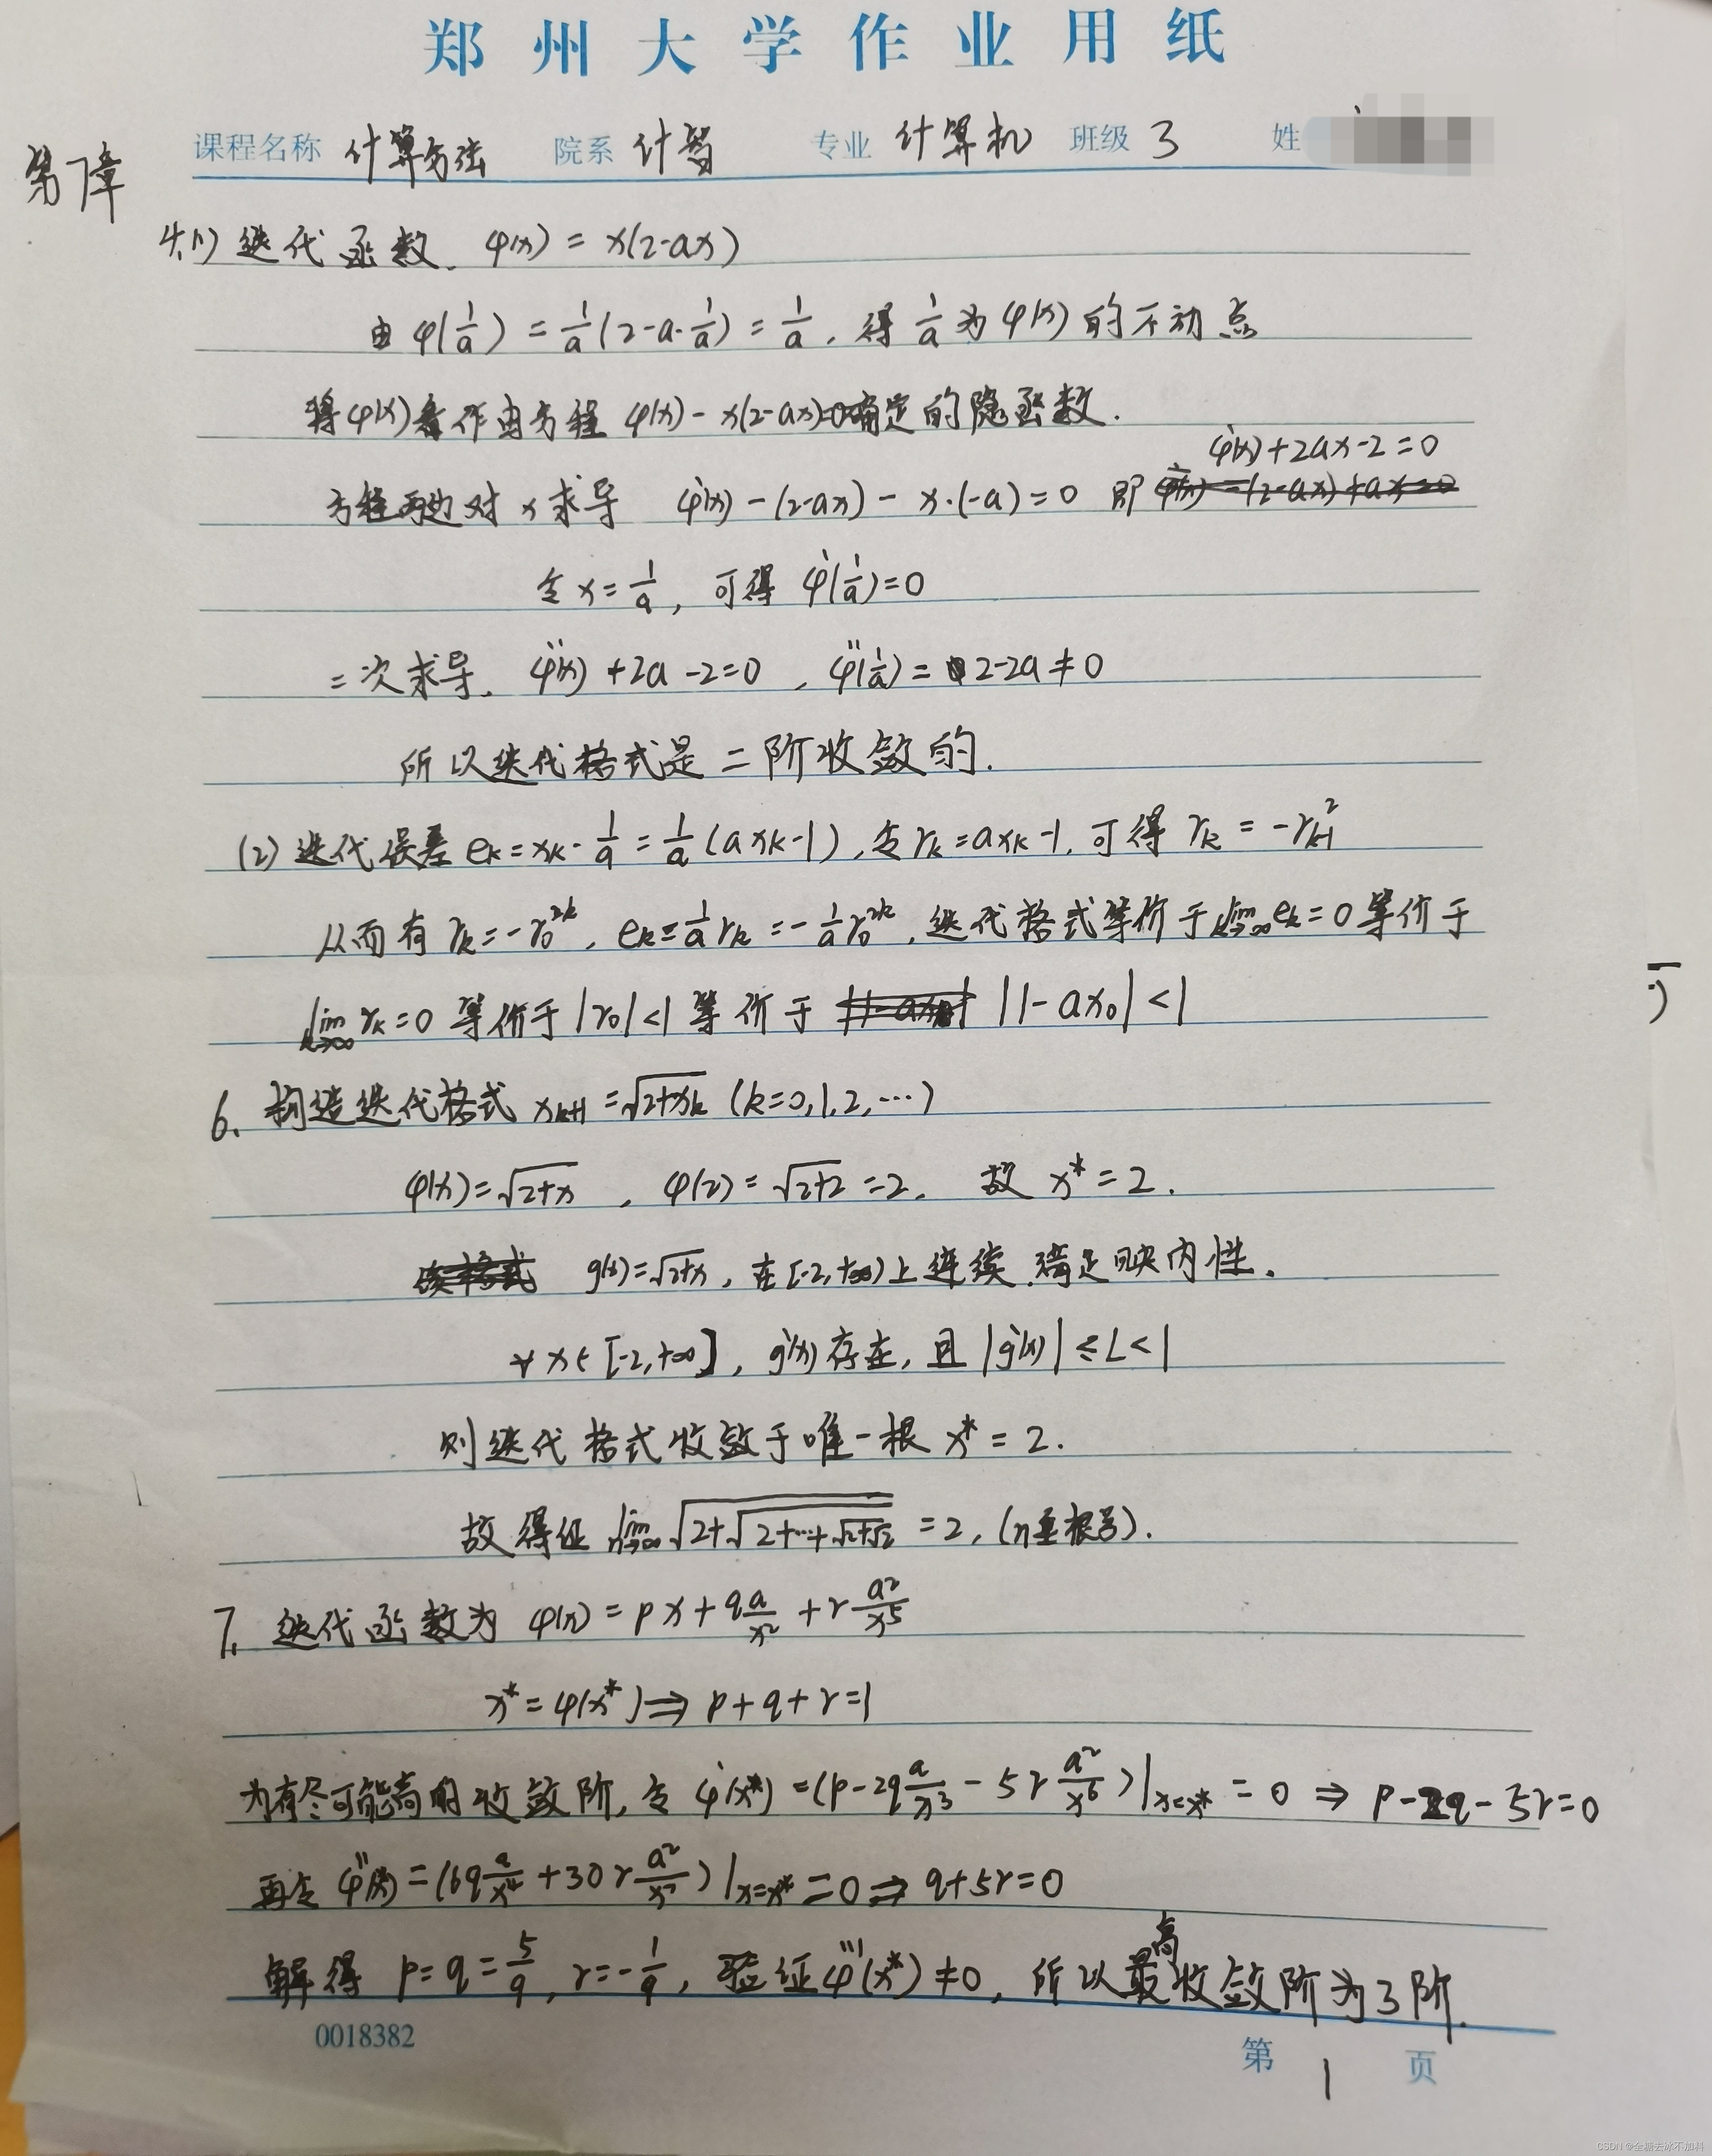 郑州大学作业用纸
课程名称 计算方法 院系 计智 专业 计算机 班级 3 姓
第7章
4.(1) 迭代函数. φ(x) = x(2-ax)
由 φ(1/a) = 1/a(2-a·1/a) = 1/a, 得 1/a 为 φ(x) 的不动点
将φ(x)看作由方程 φ(x) - x(2-ax)=0确定的隐函数.
φ'(x)+2ax-2=0
方程两边对 x 求导 φ'(x) - (2-ax) - x·(-a) = 0 即
令 x = 1/a, 可得 φ'(1/a)=0
二次求导. φ''(x) +2a -2=0, φ''(1/a) = 2-2a ≠ 0
所以迭代格式是二阶收敛的.
(2) 迭代误差 eₖ = xₖ - 1/a = 1/a (axₖ-1), 令 rₖ = axₖ-1, 可得 rₖ = -rₖ₋₁²
从而有 rₖ = -r₀^2k, eₖ = 1/a rₖ = -1/a r₀^2k, 迭代格式等价于 lim k→∞ eₖ = 0 等价于
lim k→∞ rₖ=0 等价于 |r₀| <1 等价于 |1-ax₀| <1
6. 构造迭代格式 xₖ₊₁ = √(2+xₖ) (k=0,1,2,…)
φ(x) = √(2+x), φ(2) = √(2+2) = 2. 故 x* = 2.
g(x)=√(2+x), 在[-2,+∞)上连续.满足映内性.
∀ x∈[-2,+∞], g'(x) 存在, 且 |g'(x)| ≤ L < 1
则迭代格式收敛于唯一根 x* = 2.
故得证 lim n→∞ √(2+√(2+…+√(2+√2))) = 2, (n重根号).
7. 迭代函数为 φ(x) = px + q a/x² + r a²/x⁵
x* = φ(x*) ⇒ p+q+r=1
为有尽可能高的收敛阶, 令 φ'(x*) = (p-2q a/x³ - 5r a²/x⁶)|x=x* = 0 ⇒ p-2q-5r=0
再令 φ''(x) = (6q a/x⁴ + 30r a²/x⁷)|x=x* = 0 ⇒ q+5r=0
解得 p=q=5/9, r=-1/9, 验证φ'''(x*) ≠ 0, 所以最高收敛阶为3阶.
0018382
第 1 页
CSDN @全糖去冰不加料